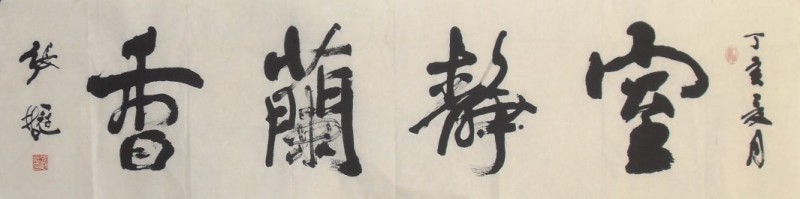 丁亥夏月
室靜蘭香
張